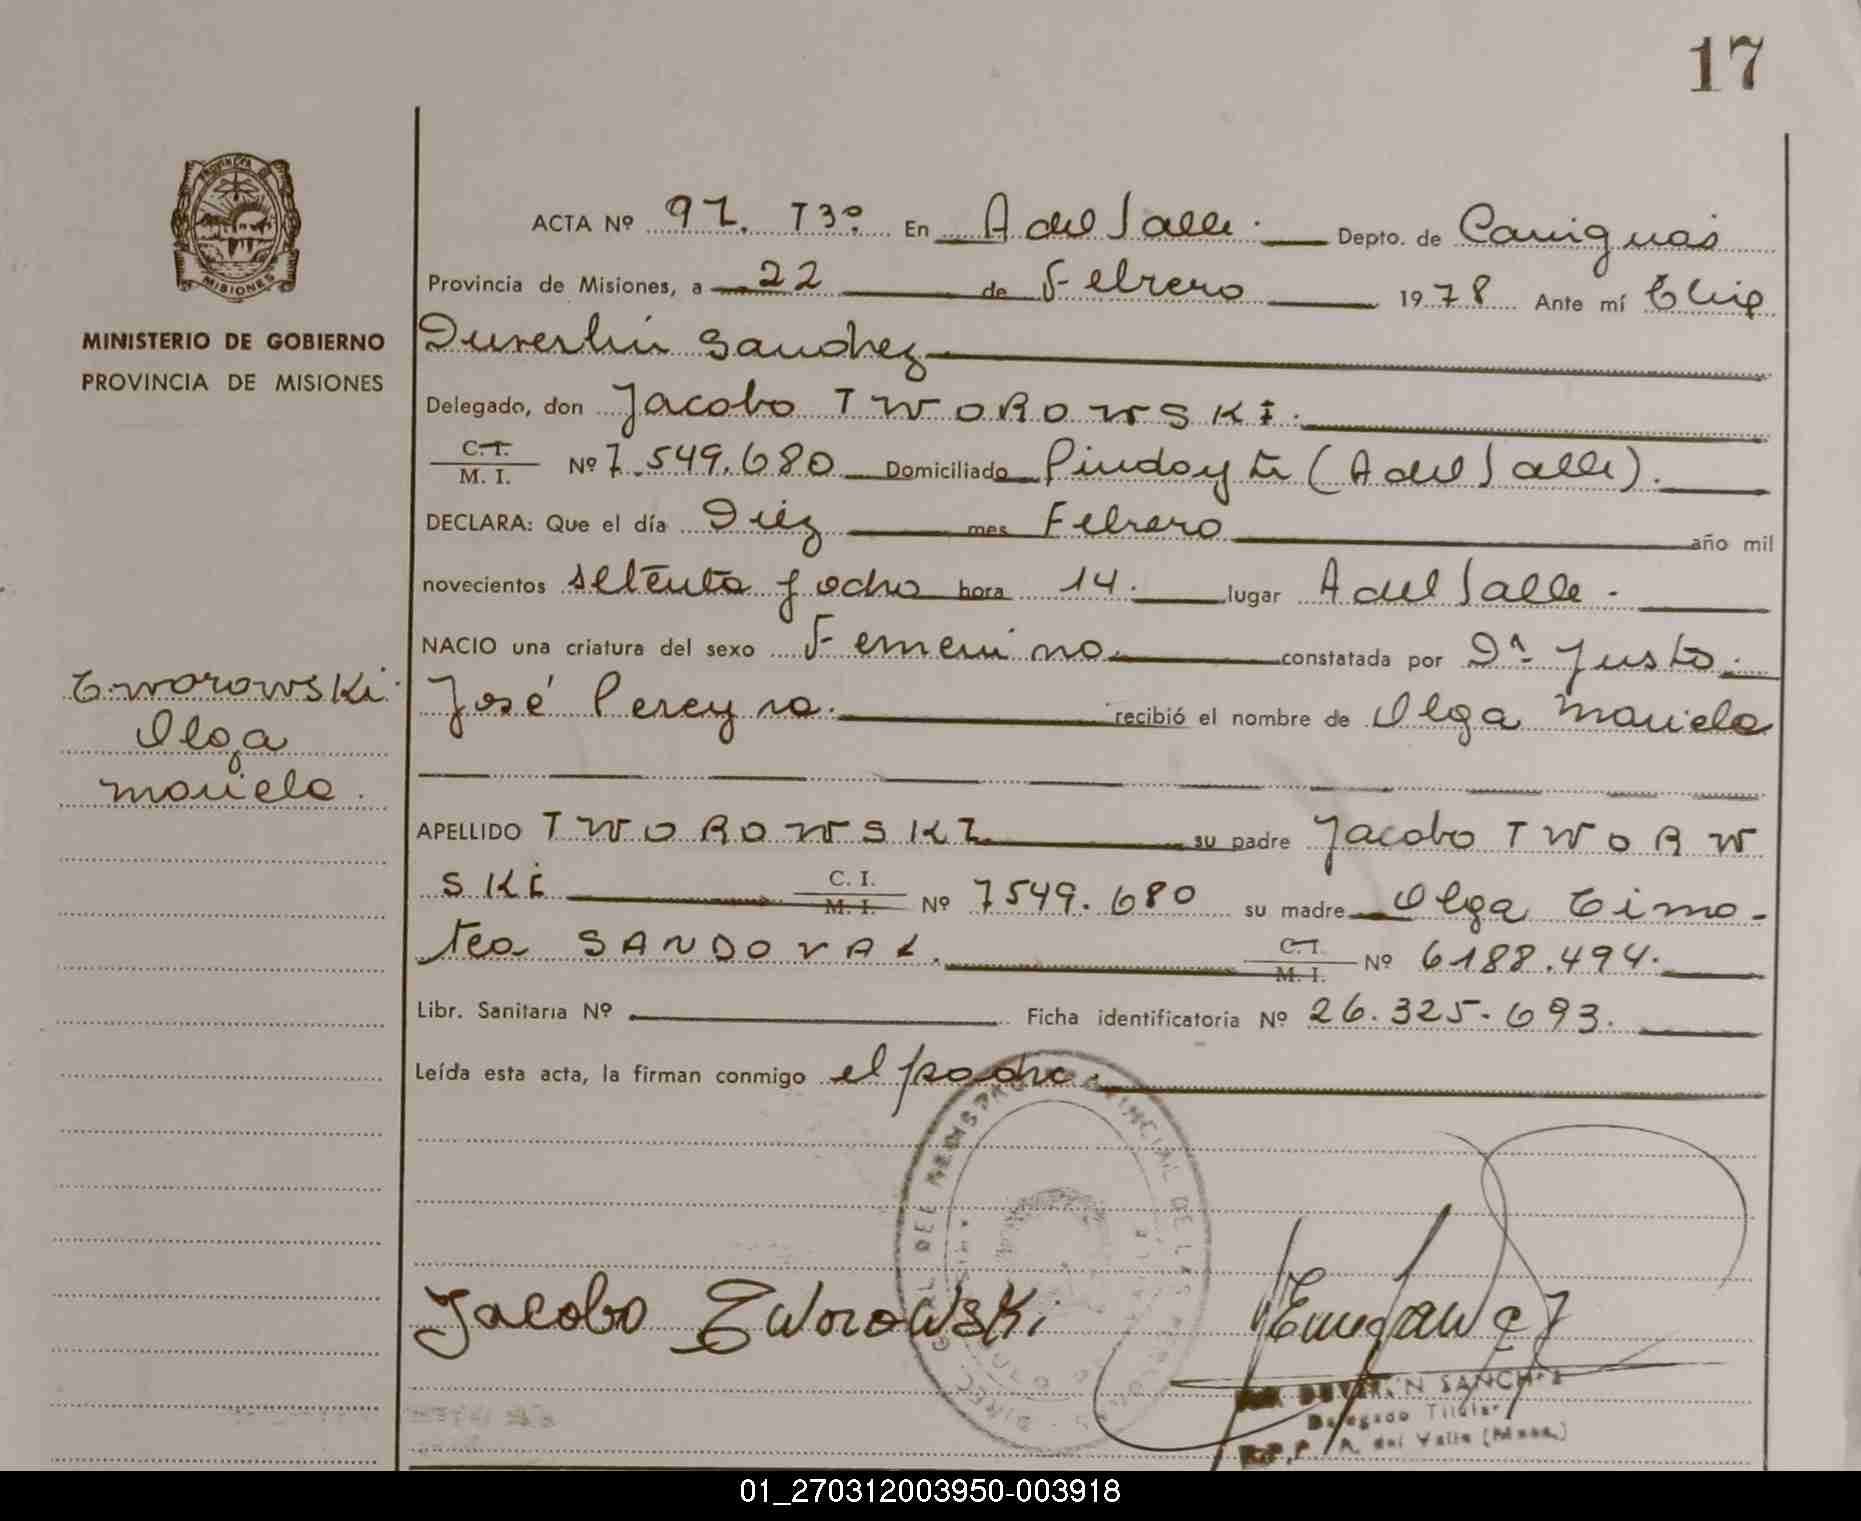 17
PROVINCIA DE
MISIONES
MINISTERIO DE GOBIERNO
PROVINCIA DE MISIONES
Tworowski
Olga
Mariela.
ACTA Nº 97. T3º. En A del Valle. Depto. de Cainguás
Provincia de Misiones, a 22 de Febrero 1978 Ante mí
Duverlin Sanchez
Delegado, don Jacobo TWOROWSKI.
C. I.
M. I. Nº 7.549.680 Domiciliado Pindoyti (A del Valle).
DECLARA: Que el día Diez mes Febrero año mil
novecientos setenta y ocho hora 14. lugar A del Valle.
NACIO una criatura del sexo Femenino constatada por Dr. Justo
José Pereyra. recibió el nombre de Olga Mariela
APELLIDO TWOROWSKI su padre Jacobo TWORW
SKI C. I.
M. I. Nº 7549.680 su madre Olga Timo-
tea SANDOVAL. C. I.
M. I. Nº 6188.494.
Libr. Sanitaria Nº Ficha identificatoria Nº 26.325.693.
Leída esta acta, la firman conmigo el padre.
Jacobo Tworowski
SANCHEZ
Delegado Titular
A. del Valle (Mnes.)
01_270312003950-003918